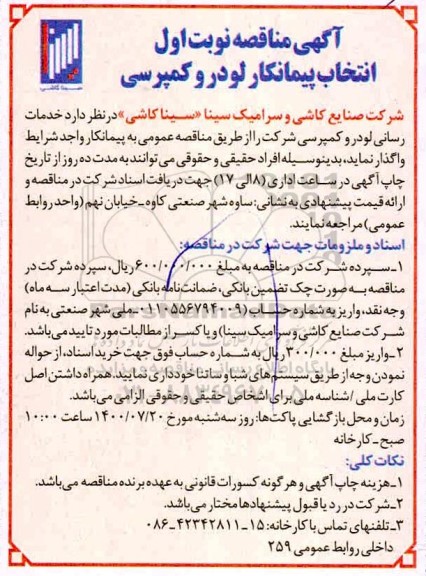 سینا کاشی
آگهی مناقصه نوبت اول
انتخاب پیمانکار لودر و کمپرسی
شرکت صنایع کاشی و سرامیک سینا «سینا کاشی» در نظر دارد خدمات
رسانی لودر و کمپرسی شرکت را از طریق مناقصه عمومی به پیمانکار واجد شرایط
واگذار نماید، بدینوسیله افراد حقیقی و حقوقی می‌توانند به مدت ده روز از تاریخ
چاپ آگهی در ساعات اداری (۸ الی ۱۷) جهت دریافت اسناد شرکت در مناقصه و
ارائه قیمت پیشنهادی به نشانی: ساوه شهر صنعتی کاوه-خیابان نهم (واحد روابط
عمومی) مراجعه نمایند.
اسناد و ملزومات جهت شرکت در مناقصه:
۱-سپرده شرکت در مناقصه به مبلغ ۶۰۰/۰۰۰/۰۰۰ ریال، سپرده شرکت در
مناقصه به صورت چک تضمین بانکی، ضمانت‌نامه بانکی (مدت اعتبار سه ماه)
وجه نقد، واریز به شماره حساب (۰۱۱۰۵۵۶۷۹۴۰۰۹-ملی شهر صنعتی به نام
شرکت صنایع کاشی و سرامیک سینا) و یا کسر از مطالبات مورد تایید می‌باشد.
۲-واریز مبلغ ۳۰۰/۰۰۰ ریال به شماره حساب فوق جهت خرید اسناد، از حواله
نمودن وجه از طریق سیستم‌های شبا و ساتنا خودداری نمایید. همراه داشتن اصل
کارت ملی / شناسه ملی برای اشخاص حقیقی و حقوقی الزامی می‌باشد.
زمان و محل بازگشایی پاکت‌ها: روز سه شنبه مورخ ۱۴۰۰/۰۷/۲۰ ساعت ۱۰:۰۰
صبح-کارخانه
نکات کلی:
۱-هزینه چاپ آگهی و هرگونه کسورات قانونی به عهده برنده مناقصه می‌باشد.
۲-شرکت در رد یا قبول پیشنهادها مختار می‌باشد.
۳-تلفنهای تماس با کارخانه: ۱۵-۴۲۳۴۲۸۱۱-۰۸۶
داخلی روابط عمومی ۲۵۹